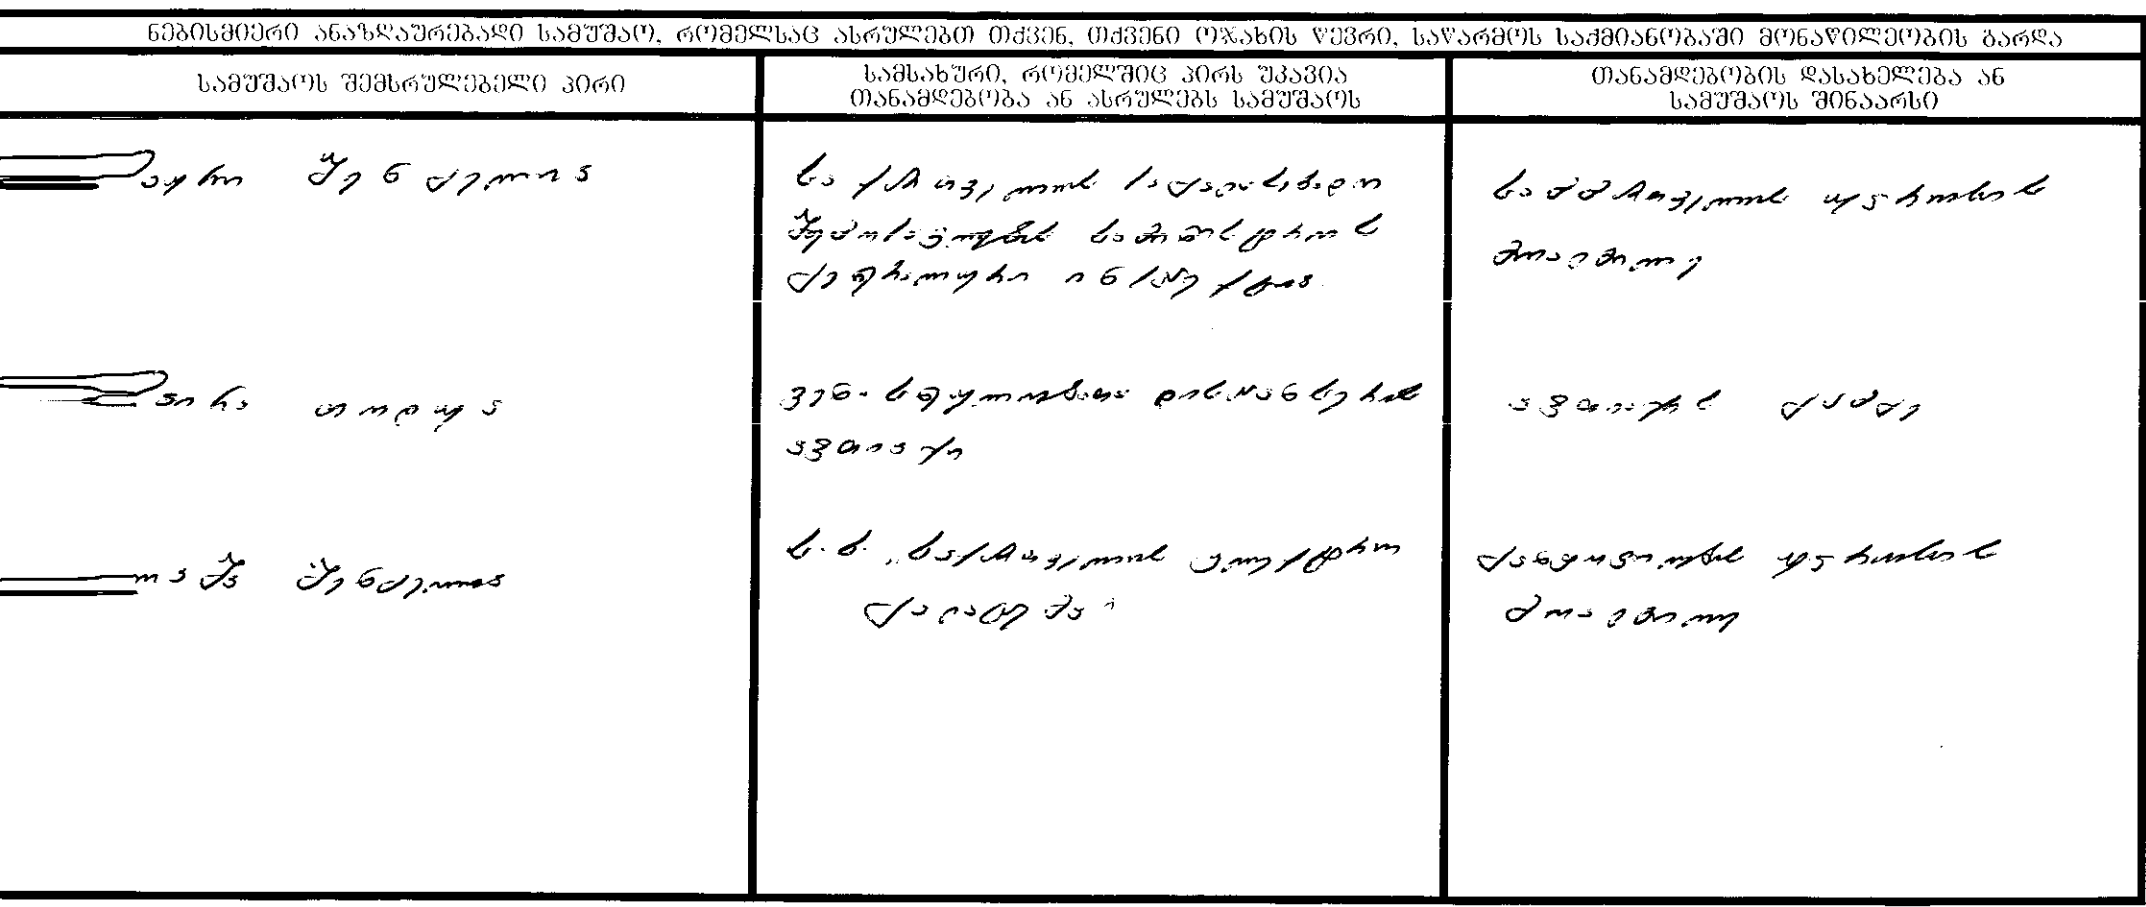 ნებისმიერი ანაზღაურებადი სამუშაო, რომელსაც ასრულებთ თქვენ, თქვენი ოჯახის წევრი, საწარმოს საქმიანობაში მონაწილეობის გარდა
სამუშაოს შემსრულებელი პირი
სამსახური, რომელშიც პირს უკავია
თანამდებობა ან ასრულებს სამუშაოს
თანამდებობის დასახელება ან
სამუშაოს შინაარსი
შენგელია
საქართველოს საგადასახადო
შემოსავლების სამინისტროს
ფედერალური ინსპექცია
საქართველოს
მოადგილე
თოდუა
ვენ. სნეულებათა დისპანსერის
აფთიაქი
აფთიაქის გამგე
შენგელია
ს.ს. "საქართველოს ელექტრო
გადაცემა"
განყოფილების უფროსის
მოადგილე